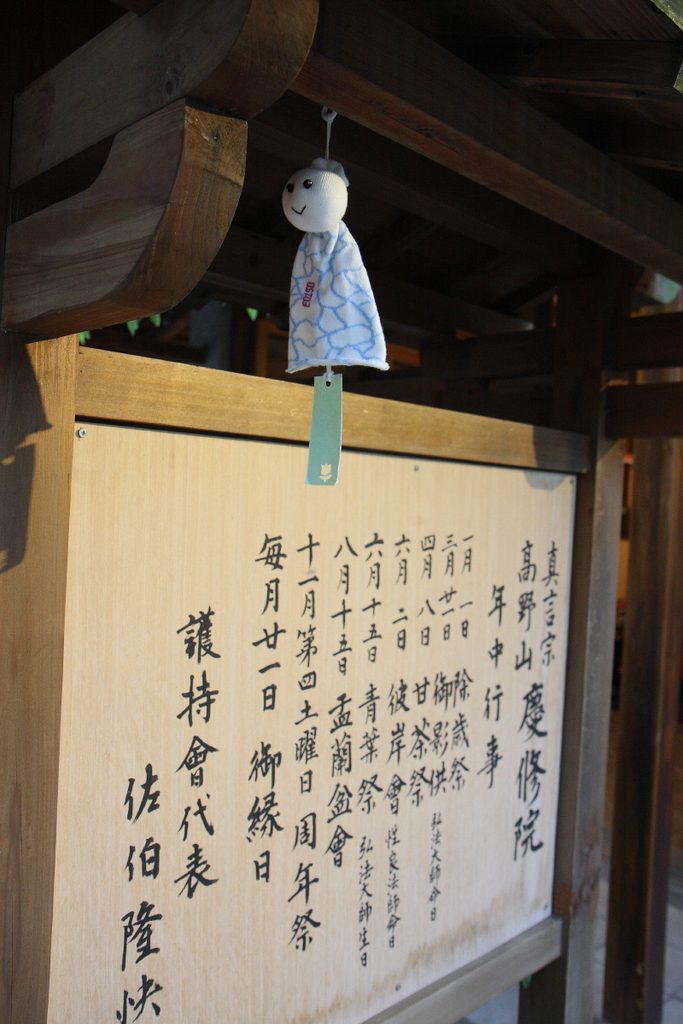 真言宗
高野山 慶修院
年中行事
一月 一日 除歳祭
三月廿一日 御影供 弘法大師命日
四月 八日 甘茶祭
六月 二日 彼岸會 法師命日
六月十五日 青葉祭 弘法大師生日
八月十五日 盂蘭盆會
十一月第四土曜日 周年祭
每月廿一日 御縁日
護持會代表
佐伯隆快